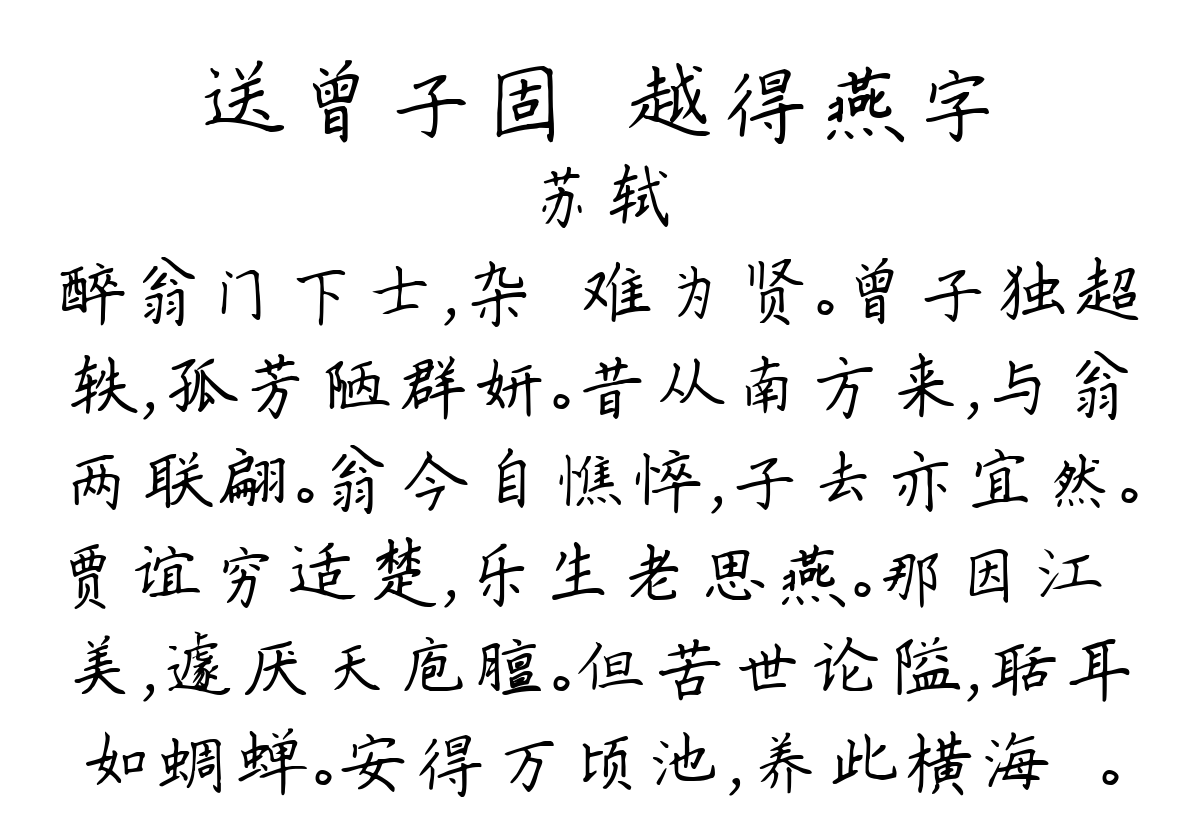 送曾子固 越得燕字
苏轼
醉翁门下士,杂 难为贤。曾子独超
轶,孤芳陋群妍。昔从南方来,与翁
两联翩。翁今自憔悴,子去亦宜然。
贾谊穷适楚,乐生老思燕。那因江
美,遽厌天庖膻。但苦世论隘,聒耳
如蜩蝉。安得万顷池,养此横海 。